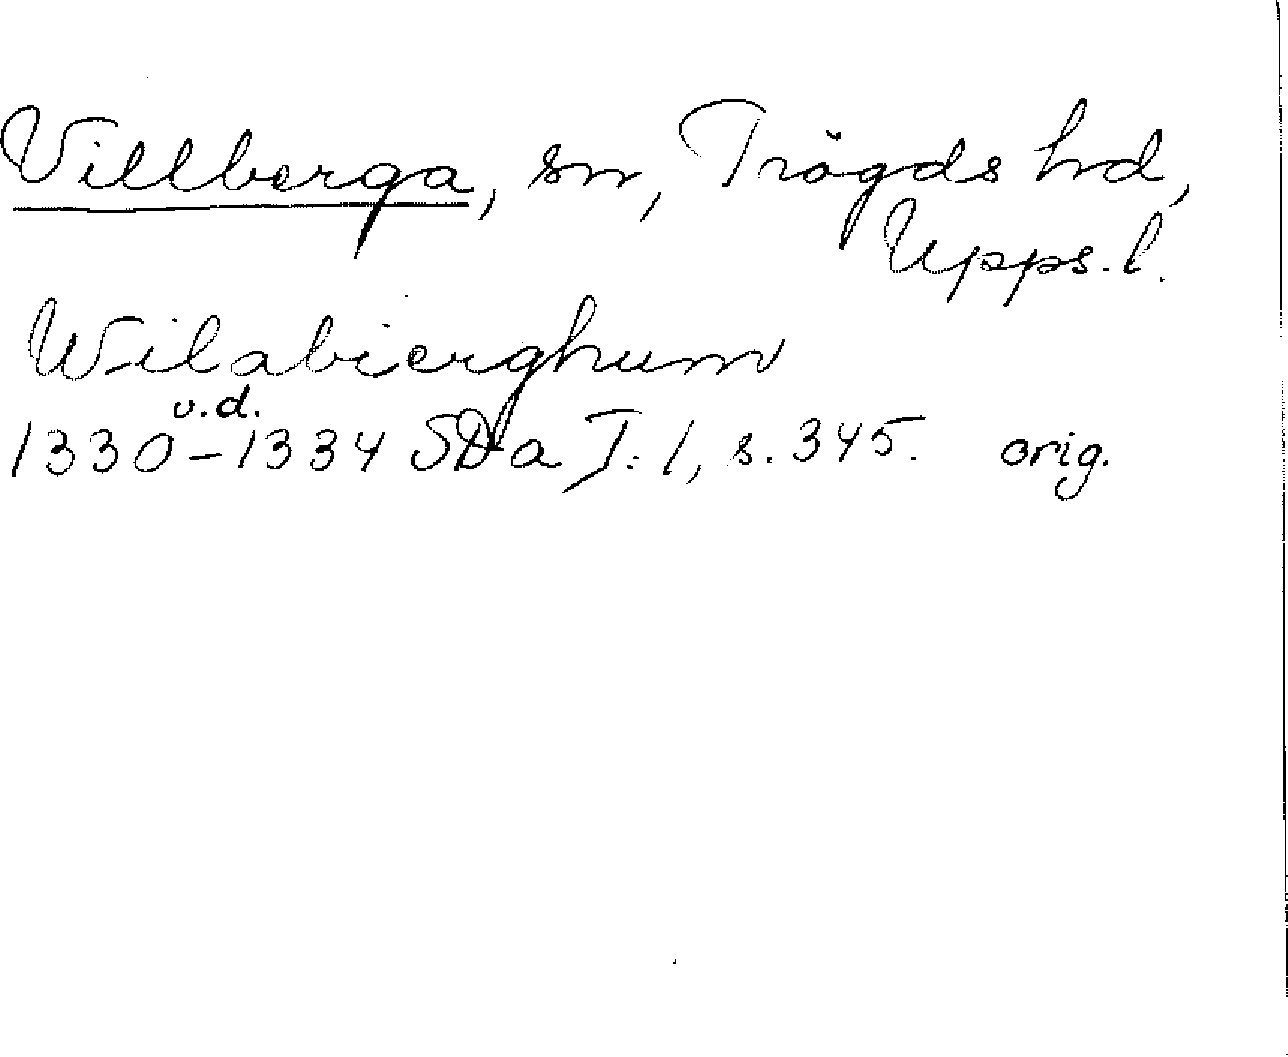 Villberga, sn, Trögds hd,
Upps. l.
Wilabierghum
u.d.
1330-1334 SDa I: 1, s. 345. orig.